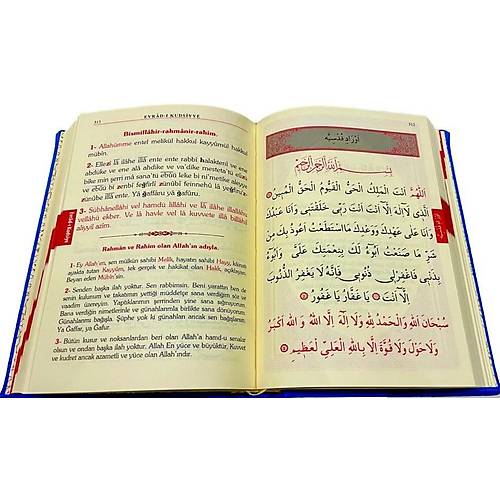 313
EVRÂD-I KUDSİYYE
Bismillâhir-rahmânir-rahîm.
1- Allahümme entel melikül hakkul kayyûmul hakkul
mübîn.
2- Ellezî lâ ilâhe illâ ente ente rabbî halaktenî ve ene
abdüke ve ene alâ ahdike ve va'dike mesteta'tü eûzü
bike min şerri mâ sana'tü ebûü leke bi ni'metike aleyye
ve ebûü bi zenbî feğfirlî zünûbî feinnehû lâ yeğfiruz
zünûbe illâ ente. Yâ ğaffâru yâ ğafûru.
3- Sübhânellâhi vel hamdü lillâhi ve lâ ilâhe illallâhu
vellâhü ekber. Ve lâ havle ve lâ kuvvete illâ billâhil
aliyyil azîm.
Rahmân ve Rahîm olan Allah'ın adıyla.
1- Ey Allah'ım, sen mülkün sahibi Melik, hayatın sahibi Hayy, kâinatı
ayakta tutan Kayyûm, tek gerçek ve hakikat olan Hakk, açıklayan,
Beyan eden Mübîn'sin.
2- Senden başka ilah yoktur. Sen rabbimsin. Beni yarattın ben de
senin kulunum ve takatımın yettiği müddetçe sana verdiğim söz ve
vaadim üzereyim. Yaptıklarımın şerrinden yine sana sığınırım.
Bana verdiğin nimetlerinle ve günahlarımla birlikte sana dönüyorum.
Günahlarımı bağışla. Şüphe yok ki günahları ancak sen bağışlarsın.
Ya Ğaffar, ya Ğafur.
3- Bütün kusur ve noksanlardan beri olan Allah'a hamd-u senalar
olsun ve ondan başka ilah yoktur, Allah En yüce ve büyüktür, Kuvvet
ve kudret ancak azametli ve yüce olan Allah'ındır.
Evrâd-ı Kudsiyye
أَوْرَادِ قُدْسِيَّه
بِسْمِ اللهِ الرَّحْمٰنِ الرَّحِيمِ
اَللّٰهُمَّ اَنْتَ الْمَلِكُ الْحَقُّ الْقَيُّومُ الْحَقُّ الْمُبِينُ
الَّذِى لَا اِلٰهَ اِلَّا اَنْتَ اَنْتَ رَبِّى خَلَقْتَنِى وَاَنَا عَبْدُكَ
وَاَنَا عَلٰى عَهْدِكَ وَوَعْدِكَ مَا اسْتَطَعْتُ اَعُوذُ بِكَ مِنْ
شَرِّ مَا صَنَعْتُ اَبُوءُ لَكَ بِنِعْمَتِكَ عَلَىَّ وَاَبُوءُ
بِذَنْبِى فَاغْفِرْلِى ذُنُوبِى فَاِنَّهُ لَا يَغْفِرُ الذُّنُوبَ
اِلَّا اَنْتَ يَا غَفَّارُ يَا غَفُورُ
سُبْحَانَ اللهِ وَالْحَمْدُ لِلّٰهِ وَلَا اِلٰهَ اِلَّا اللهُ وَ اللهُ اَكْبَرُ
وَلَا حَوْلَ وَلَا قُوَّةَ اِلَّا بِاللهِ الْعَلِىِّ الْعَظِيمِ